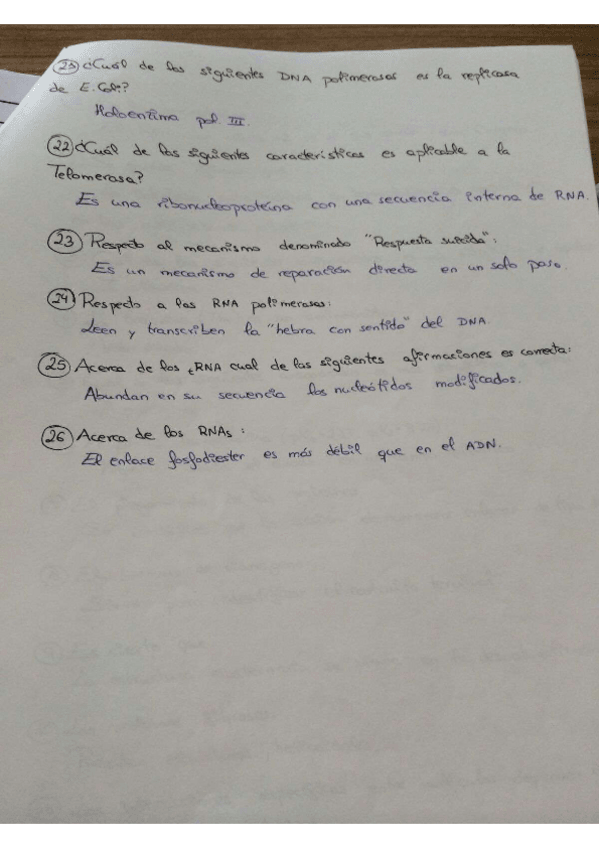 23 ¿Cuál de las siguientes DNA polimerasas es la replicasa
de E.Coli?
Holoenzima pol III.
22 ¿Cuál de las siguientes características es aplicable a la
Telomerasa?
Es una ribonucleoproteína con una secuencia interna de RNA.
23 Respecto al mecanismo denominado "Respuesta suicida":
Es un mecanismo de reparación directa en un solo paso.
24 Respecto a las RNA polimerasas:
Leen y transcriben la "hebra con sentido" del DNA.
25 Acerca de los tRNA cual de las siguientes afirmaciones es correcta:
Abundan en su secuencia los nucleótidos modificados.
26 Acerca de los RNAs:
El enlace fosfodiester es más débil que en el ADN.